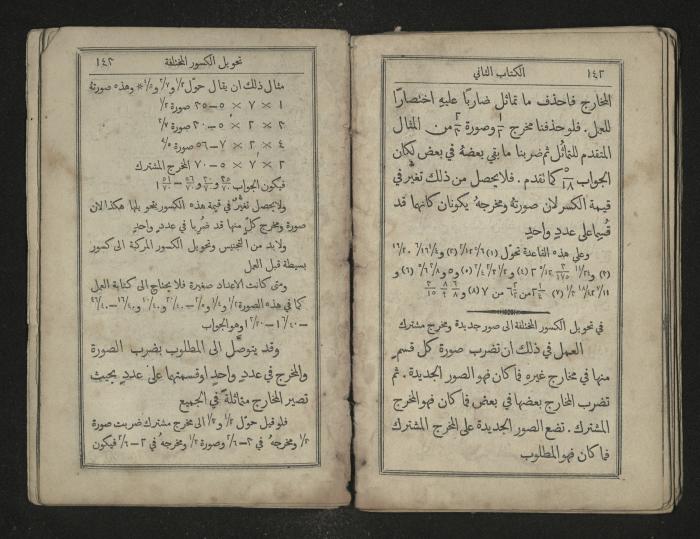 ١٤٢ الكتاب الثاني
المخارج فاحذف ما تماثل ضاربًا عليهِ اختصارًا
للعمل. فلو حذفنا مخرج وصورة من المثال
المتقدم للتماثُل ثم ضربنا ما بقي بعضهُ في بعض لكان
الجواب ٥/١٨ كما تقدم. فلا يحصل من ذلك تغيُّر في
قيمة الكسر لان صورتهُ ومخرجهُ يكونان كانهما قد
قُسِما على عددٍ واحدٍ
وعلي هذه القاعدة تحوّل (١)
في تحويل الكسور المختلفة الى صور جديدة ومخرج مشترك
العمل في ذلك ان تضرب صورة كل قسم
منها في مخارج غيره فما كان فهو الصور الجديدة. ثم
تضرب المخارج بعضها في بعض فما كان فهو المخرج
المشترك. تضع الصور الجديدة على المخرج المشترك
فما كان فهو المطلوب
تحويل الكسور المختلفة ١٤٣
مثال ذلك ان يقال حوّل ١/٢ و ٢/٧ و ٤/٥ * وهذه صورته
١ × ٧ × ٥ – ٣٥ صورة ١/٢
٢ × ٢ × ٥ – ٢٠ صورة ٢/٧
٤ × ٢ × ٧ – ٥٦ صورة ٤/٥
٢ × ٧ × ٥ – ٧٠ المخرج المشترك
فيكون الجواب ٣٥/٧٠ و ٢٠/٧٠ و ٥٦/٧٠
ولا يحصل تغيُّر في قيمة هذه الكسور بتحويلها هكذا لان
صورة ومخرج كلٍّ منها قد ضُرِبا في عددٍ واحدٍ
ولا بد من التجنيس وتحويل الكسور المركبة الى كسور
بسيطة قبل العمل
ومتى كانت الاعداد صغيرة فلا يحتاج الى كتابة العمل
كما في هذه الصورة
وهو الجواب
وقد يتوصَّل الى المطلوب بضرب الصورة
والمخرج في عددٍ واحدٍ او قسمتهما على عددٍ بحيث
تصير المخارج متماثلة في الجميع
فلو قيل حوّل ١/٢ و ١/٣ الى مخرج مشترك ضربت صورة
١/٢ ومخرجهُ في ٣ – ٣/٦ وصورة ١/٣ ومخرجهُ في ٢ – ٢/٦ فيكون